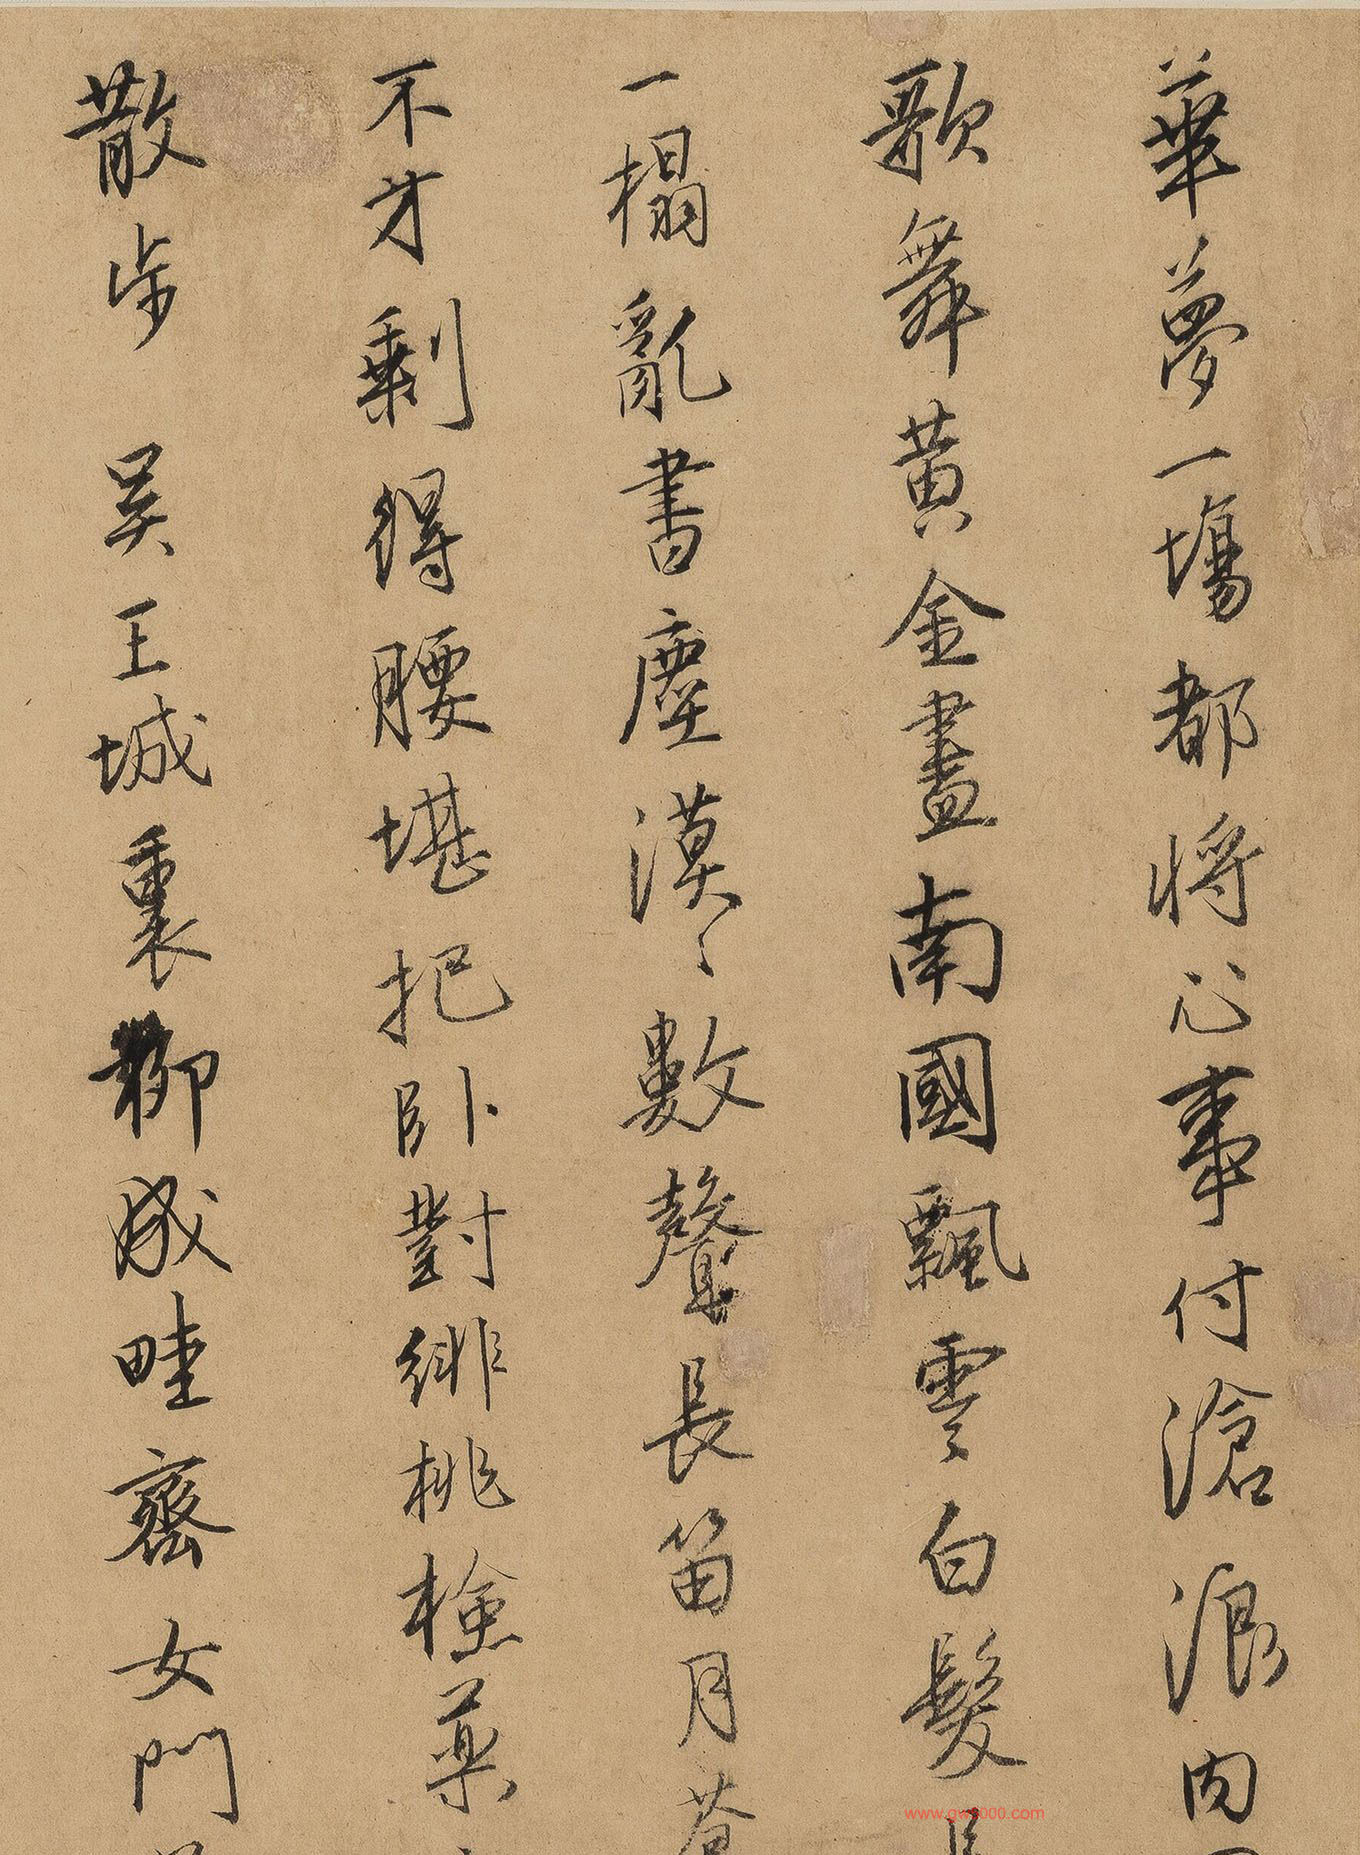 華夢一場都将心事付滄浪内
歌舞黄金盡南國飄雲白髮
一榻亂書塵漠〻數聲長笛月蒼
不才剩得腰堪把卧對緋桃檢藥
散步 吴王城裏柳成畦齊女門
www.gw1000.com